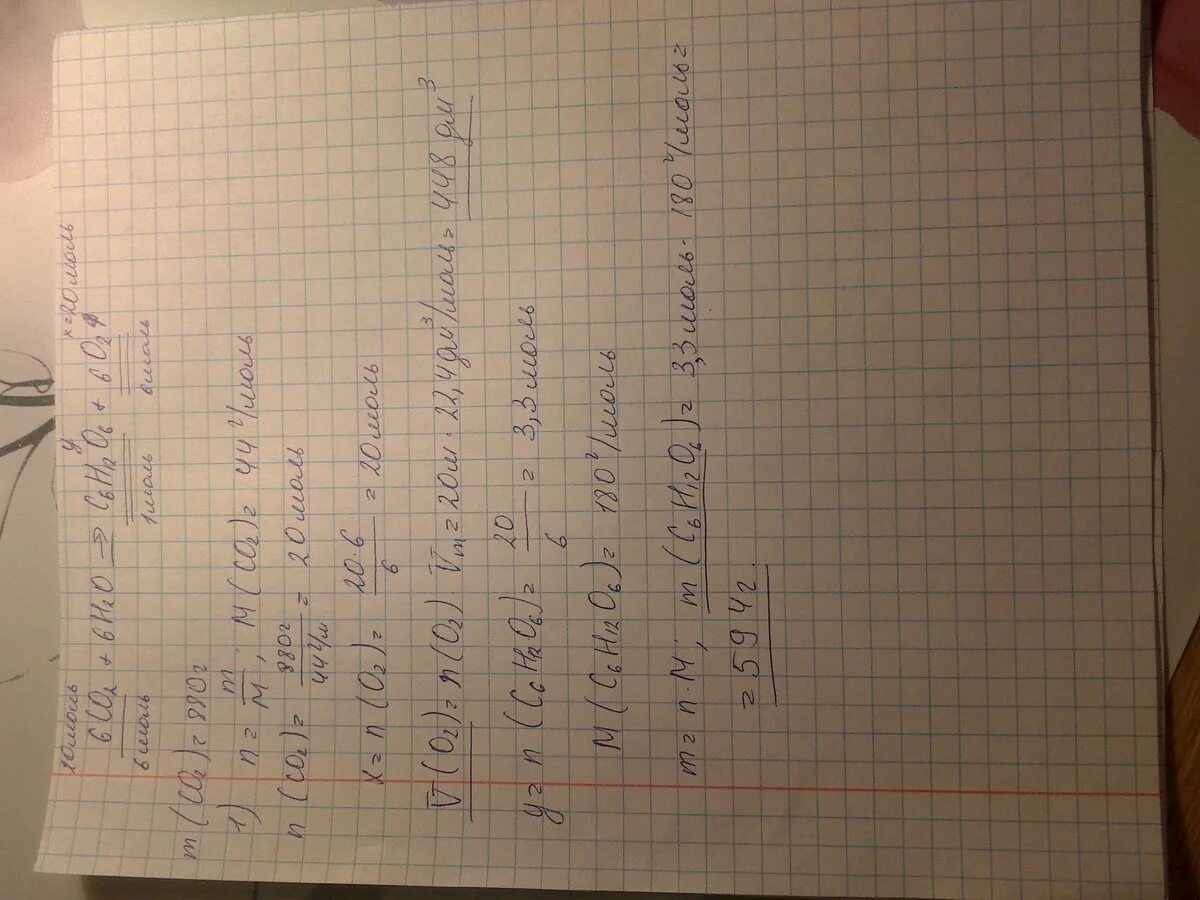 20моль y x=20моль
6CO₂ + 6H₂O → C₆H₁₂O₆ + 6O₂↑
6моль 1моль 6моль
m (CO₂)= 880г
1) n= m/M ; M (CO₂)= 44 г/моль
n (CO₂)= 880г/44г/м = 20моль
x= n (O₂)= 20·6/6 = 20моль
V(O₂)= n(O₂)·Vm= 20м·22,4дм³/моль= 448 дм³
y= n (C₆H₁₂O₆)= 20/6 = 3,3моль
M (C₆H₁₂O₆)= 180г/моль
m= n·M; m (C₆H₁₂O₆)= 3,3моль·180г/моль=
= 594г.